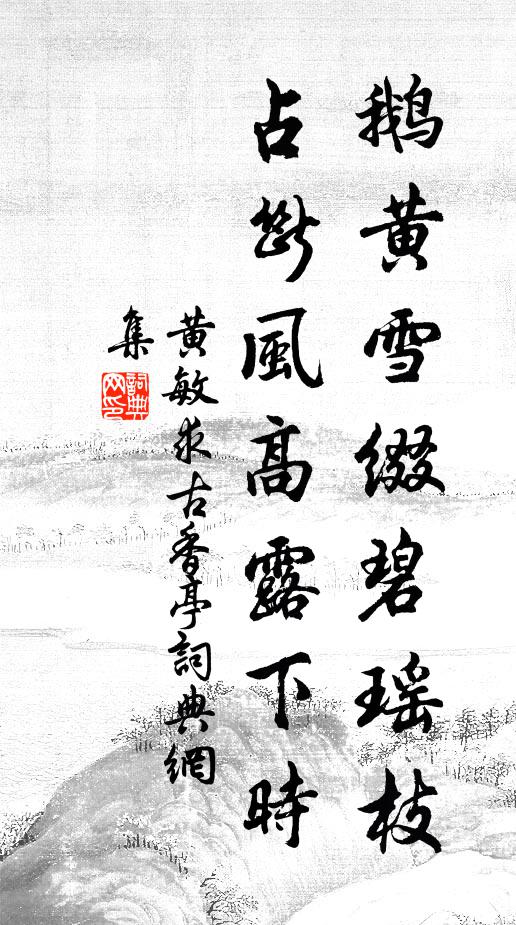 鵝黄雪綴碧瑶枝
占斷風高露下時
黄敏求古香亭詞典網
集
詞典網印